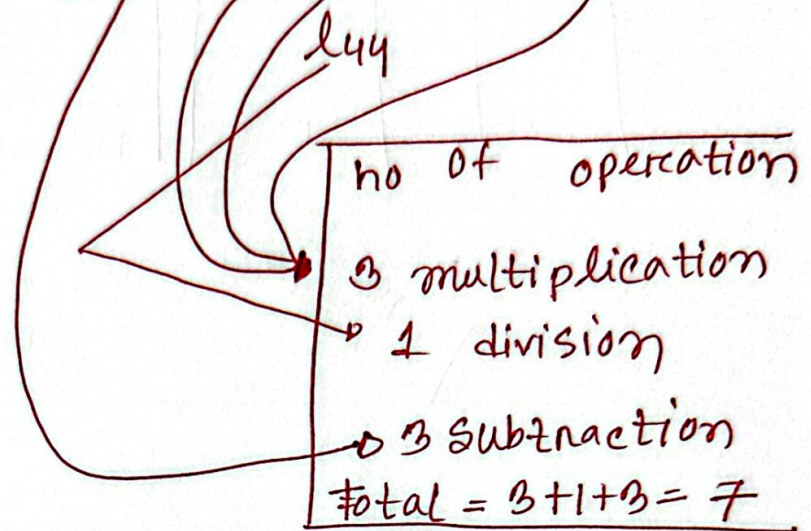 l44
no of operation
3 multiplication
1 division
3 subtraction
Total = 3+1+3= 7